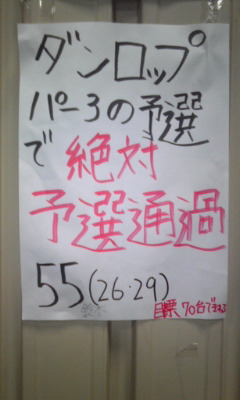 ダンロップ
パー3の予選
で絶対
予選通過
55(26・29)
目標70台できる